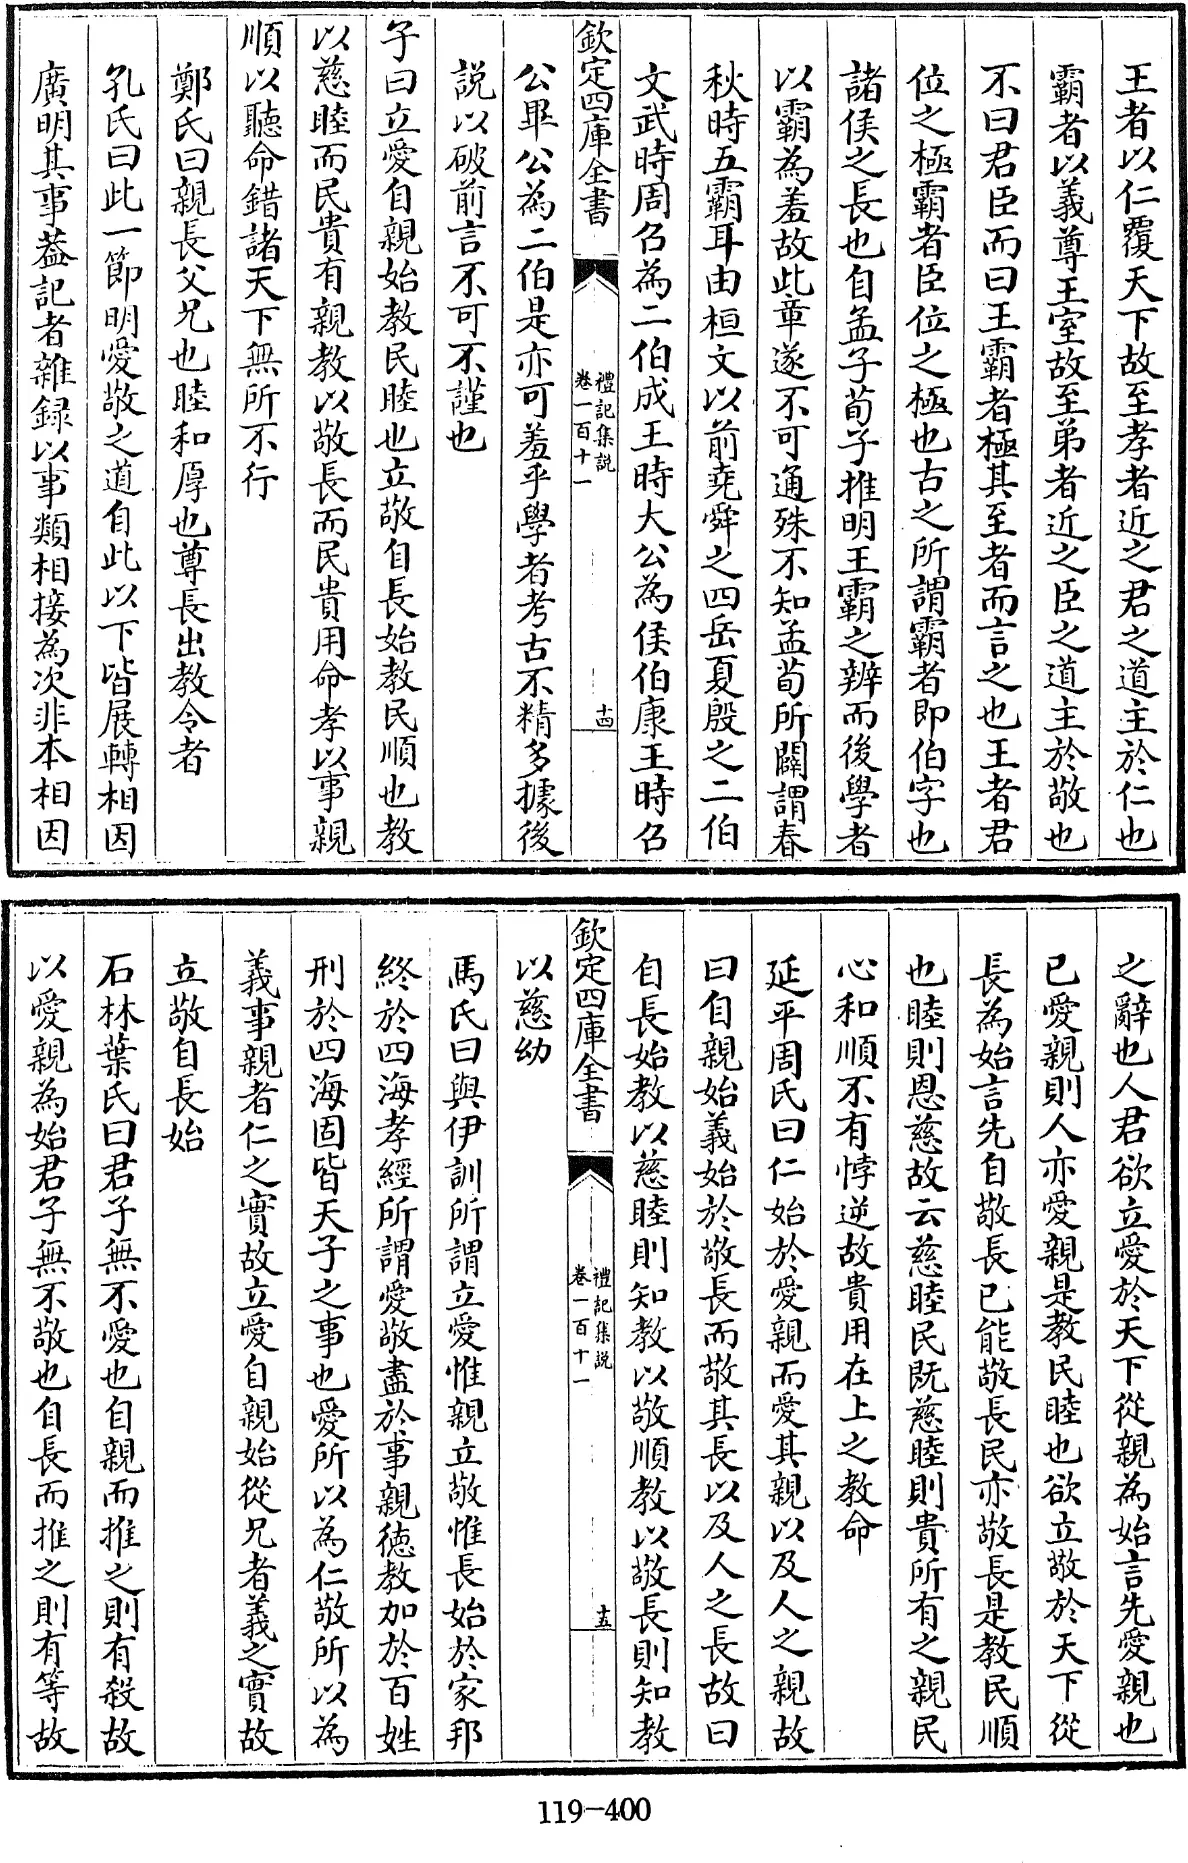 王者以仁覆天下故至孝者近之君之道主於仁也
霸者以義尊王室故至弟者近之臣之道主於敬也
不曰君臣而曰王霸者極其至者而言之也王者君
位之極霸者臣位之極也古之所謂霸者即伯字也
諸侯之長也自孟子荀子推明王霸之辨而後學者
以霸為羞故此章遂不可通殊不知孟荀所闢謂春
秋時五霸耳由桓文以前堯舜之四岳夏殷之二伯
文武時周召為二伯成王時大公為侯伯康王時召
欽定四庫全書
禮記集說
卷一百十一
十四
公畢公為二伯是亦可羞乎學者考古不精多據後
説以破前言不可不謹也
子曰立愛自親始教民睦也立敬自長始教民順也教
以慈睦而民貴有親教以敬長而民貴用命孝以事親
順以聽命錯諸天下無所不行
鄭氏曰親長父兄也睦和厚也尊長出教令者
孔氏曰此一節明愛敬之道自此以下皆展轉相因
廣明其事葢記者雜録以事類相接為次非本相因
之辭也人君欲立愛於天下從親為始言先愛親也
已愛親則人亦愛親是教民睦也欲立敬於天下從
長為始言先自敬長已能敬長民亦敬長是教民順
也睦則恩慈故云慈睦民既慈睦則貴所有之親民
心和順不有悖逆故貴用在上之教命
延平周氏曰仁始於愛親而愛其親以及人之親故
曰自親始義始於敬長而敬其長以及人之長故曰
自長始教以慈睦則知教以敬順教以敬長則知教
欽定四庫全書
禮記集説
卷一百十一
十五
以慈幼
馬氏曰與伊訓所謂立愛惟親立敬惟長始於家邦
終於四海孝經所謂愛敬盡於事親德教加於百姓
刑於四海固皆天子之事也愛所以為仁敬所以為
義事親者仁之實故立愛自親始從兄者義之實故
立敬自長始
石林葉氏曰君子無不愛也自親而推之則有殺故
以愛親為始君子無不敬也自長而推之則有等故
119-400